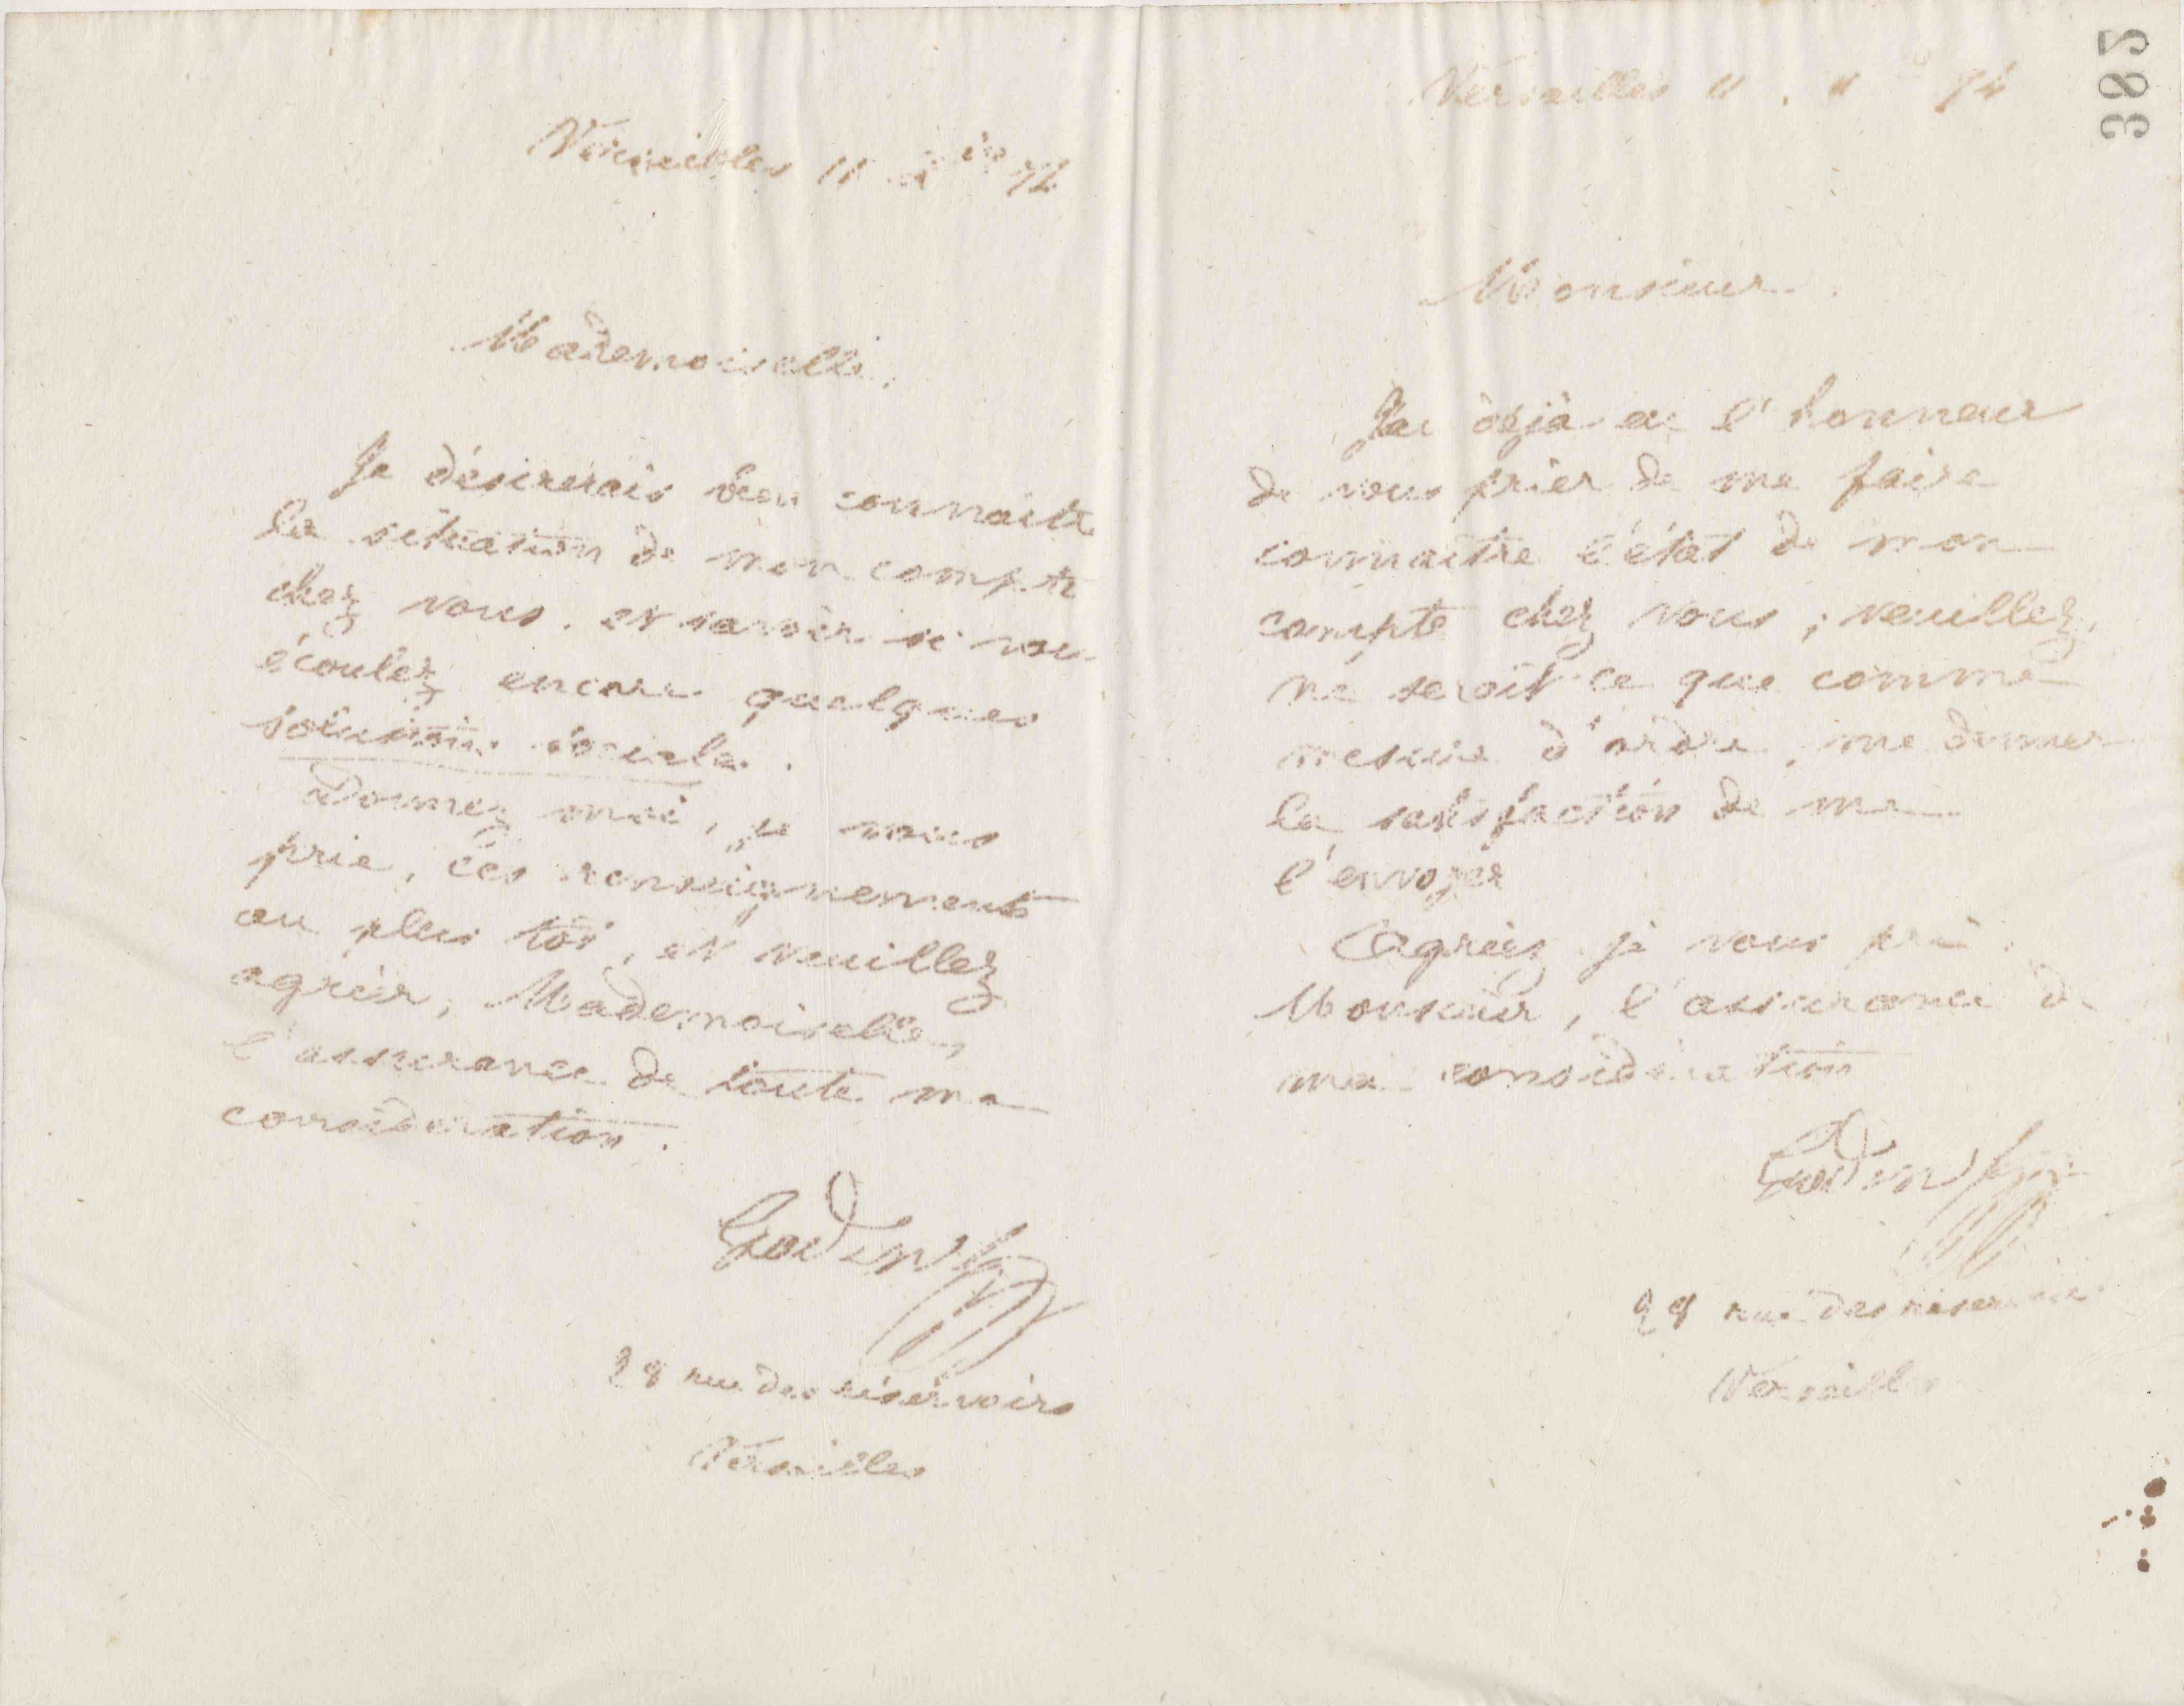 Versailles 11 72
Mademoiselle,
Je désirerais bien connaitre
la situation de mon compte
chez vous. et savoir si vous
écoulez encore quelques
solution sociale.
Donnez moi, je vous
prie, ces renseignements
au plus tôt, et veuillez
agréer, Mademoiselle,
l'assurance de toute ma
considération.
Godin
28 rue des réservoirs
Versailles
382
Versailles 11
Monsieur.
J'ai déjà eu l'honneur
de vous prier de me faire
connaître l'état de mon
compte chez vous ; veuillez,
ne serait ce que comme
mesure d'ordre, me donner
la satisfaction de me
l'envoyer
Agréez je vous prie
Monsieur, l'assurance de
ma considération
Godin
28 rue des réservoirs
Versailles